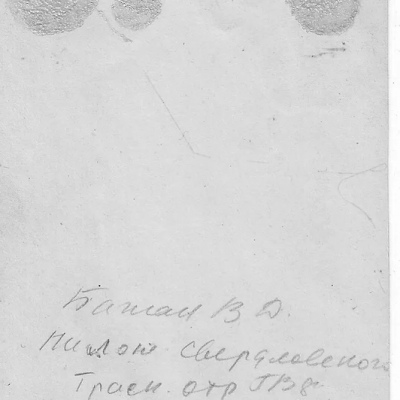 Бажан В Д.
Пилот Свердловского
Трасп. отр ГВФ